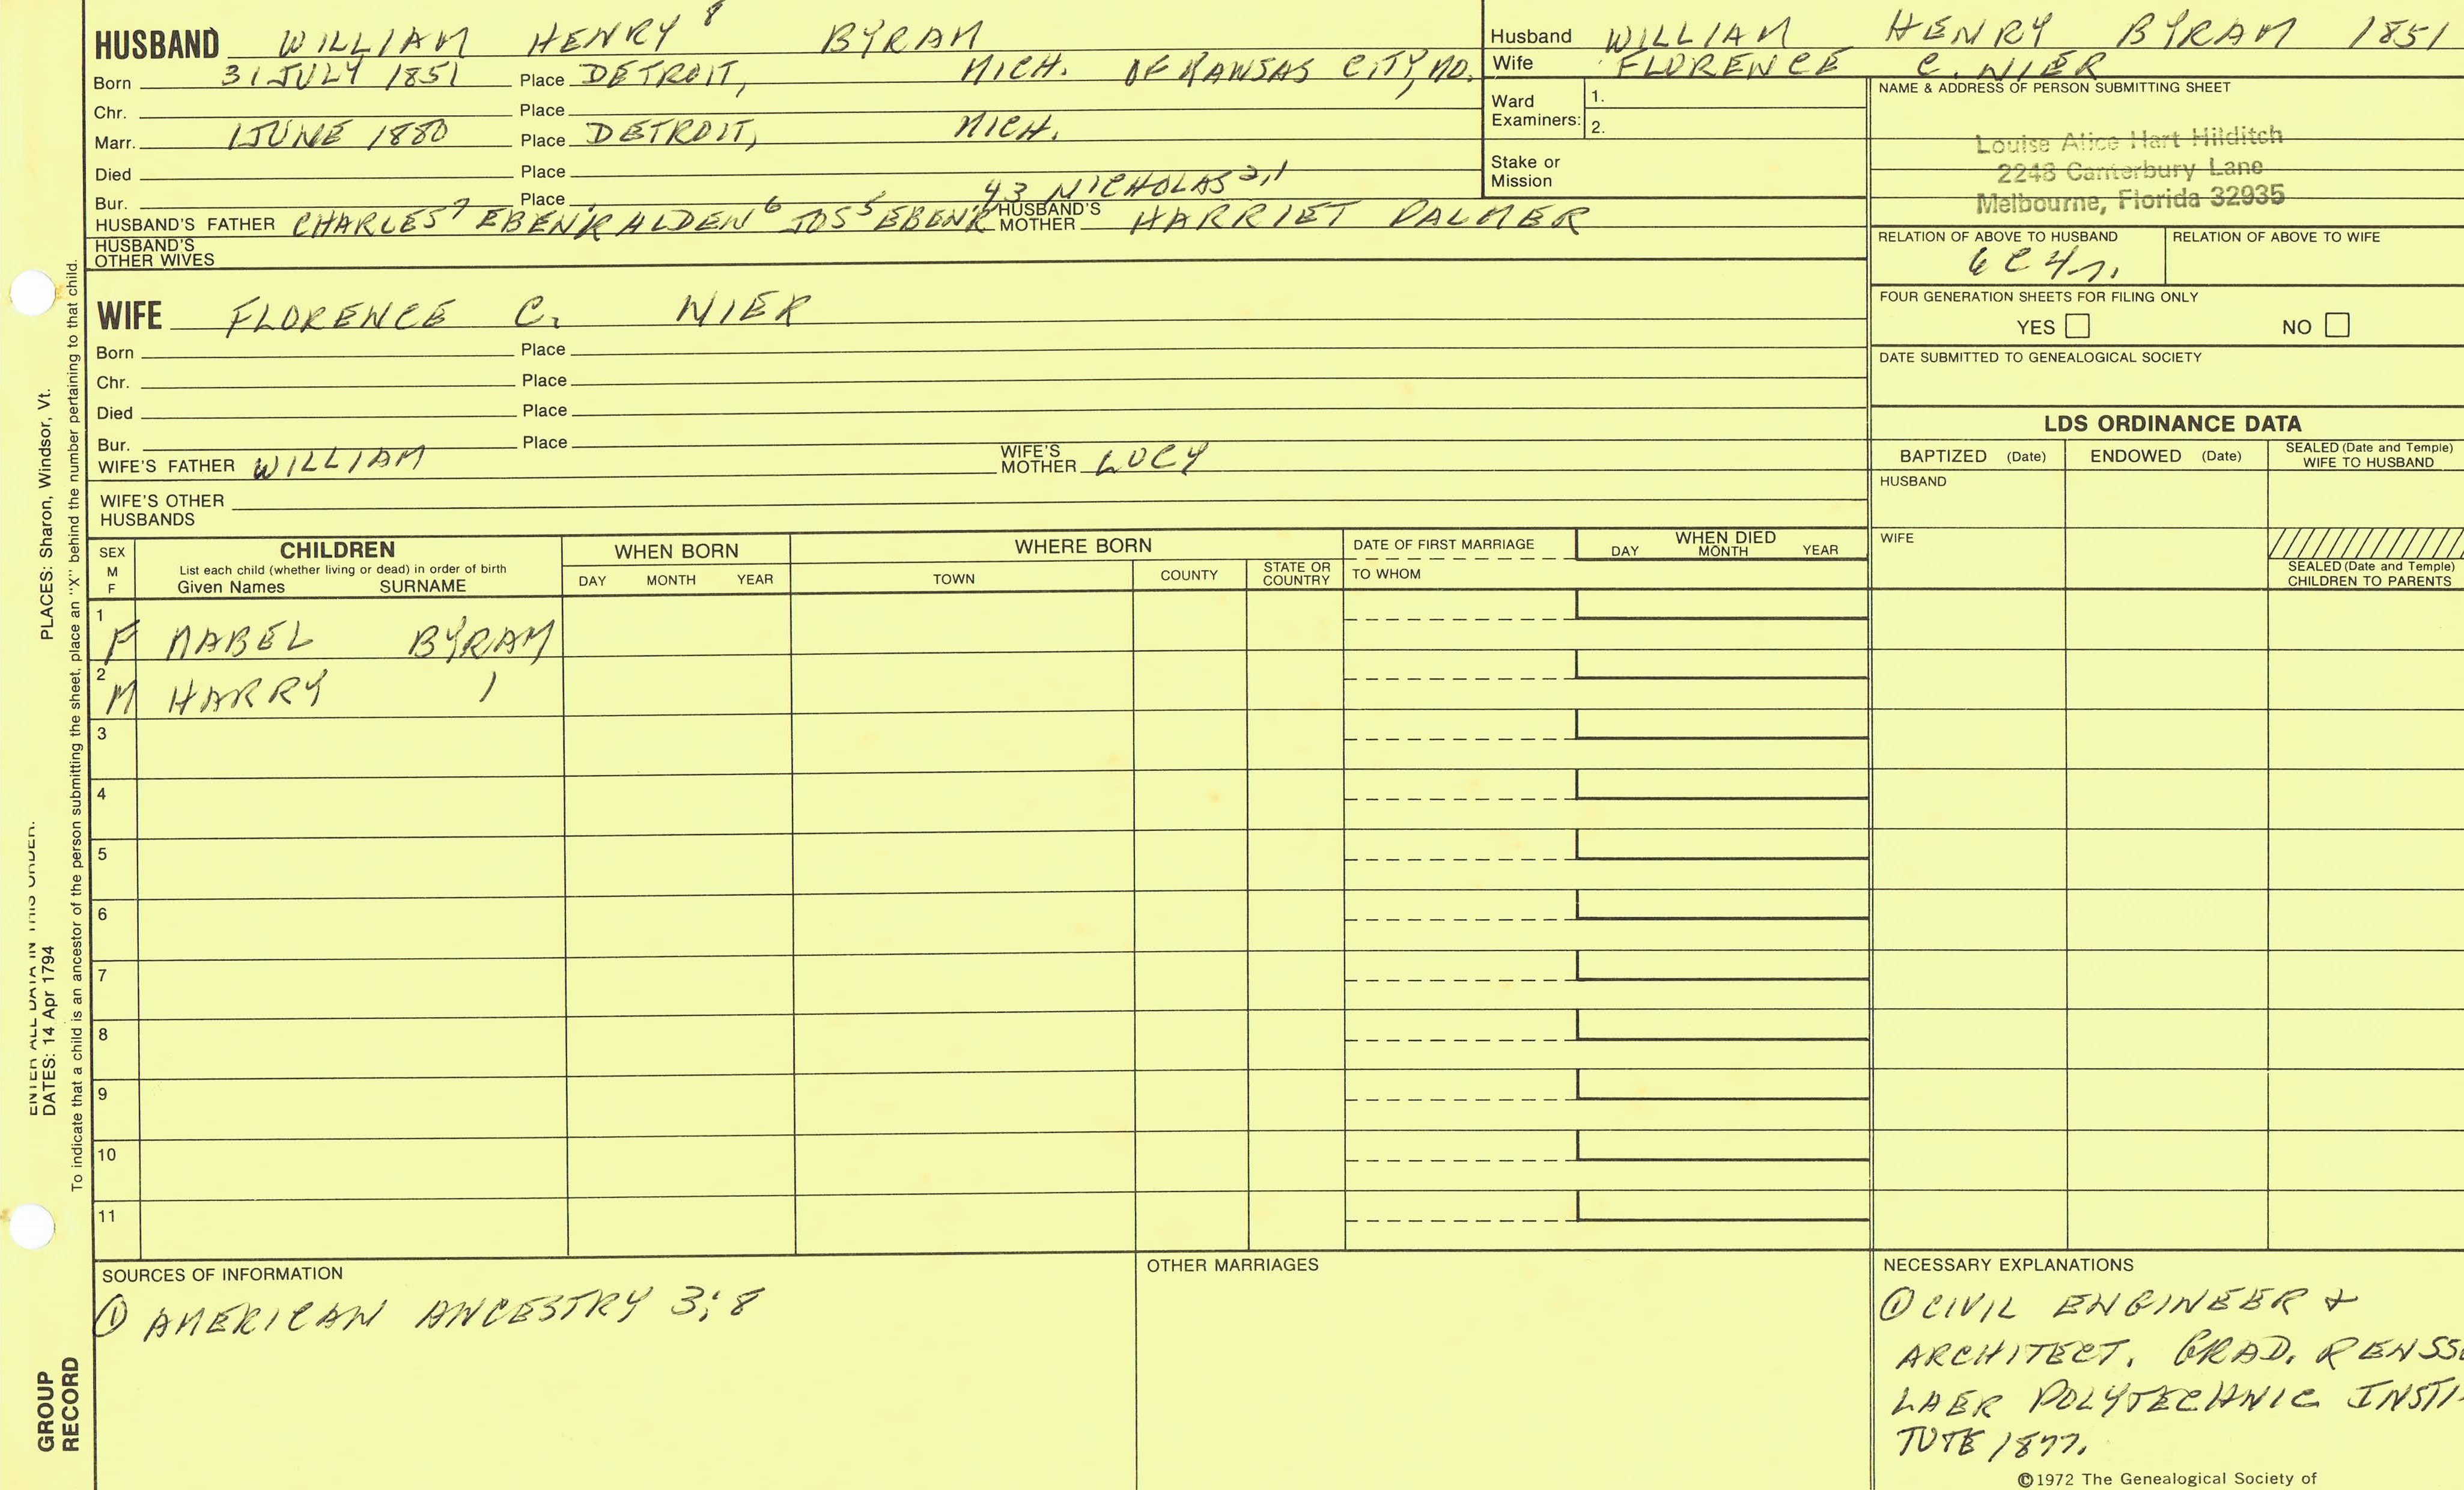 HUSBAND WILLIAM HENRY 8 BYRAM
Born 31 JULY 1851 Place DETROIT, MICH. OF KANSAS CITY, MO.
Chr. Place
Marr. 1 JUNE 1880 Place DETROIT, MICH.
Died Place
Bur. Place 43 NICHOLAS 2,1
HUSBAND'S FATHER CHARLES 7 EBEN'R ALDEN 6 JOS 5 EBEN'R HUSBAND'S MOTHER HARRIET PALMER
HUSBAND'S OTHER WIVES
WIFE FLORENCE C. NIER
Born Place
Chr. Place
Died Place
Bur. Place
WIFE'S FATHER WILLIAM WIFE'S MOTHER LUCY
WIFE'S OTHER HUSBANDS
Husband WILLIAM HENRY BYRAM 1851
Wife FLORENCE C. NIER
Ward Examiners: 1.
2.
Stake or Mission
NAME & ADDRESS OF PERSON SUBMITTING SHEET
Louise Alice Hart Hilditch
2248 Canterbury Lane
Melbourne, Florida 32935
RELATION OF ABOVE TO HUSBAND RELATION OF ABOVE TO WIFE
6C4r.
FOUR GENERATION SHEETS FOR FILING ONLY
YES NO
DATE SUBMITTED TO GENEALOGICAL SOCIETY
LDS ORDINANCE DATA
BAPTIZED (Date) ENDOWED (Date) SEALED (Date and Temple) WIFE TO HUSBAND
HUSBAND
WIFE
SEALED (Date and Temple) CHILDREN TO PARENTS
SEX M F
CHILDREN
List each child (whether living or dead) in order of birth
Given Names SURNAME
WHEN BORN
DAY MONTH YEAR
WHERE BORN
TOWN COUNTY STATE OR COUNTRY
DATE OF FIRST MARRIAGE
TO WHOM
WHEN DIED
DAY MONTH YEAR
1 F MABEL BYRAM
2 M HARRY )
3
4
5
6
7
8
9
10
11
SOURCES OF INFORMATION
① AMERICAN ANCESTRY 3:8
OTHER MARRIAGES
NECESSARY EXPLANATIONS
① CIVIL ENGINEER &
ARCHITECT. GRAD. RENSSE
LAER POLYTECHNIC INSTI-
TUTE 1877.
©1972 The Genealogical Society of
ENTER ALL DATA IN THIS ORDER.
DATES: 14 Apr 1794 PLACES: Sharon, Windsor, Vt.
To indicate that a child is an ancestor of the person submitting the sheet, place an "X" behind the number pertaining to that child.
GROUP
RECORD